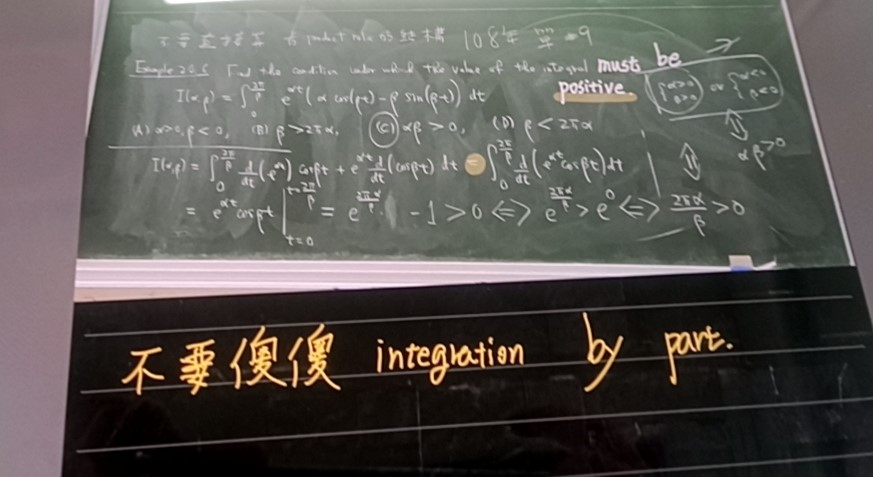 product rule 的結構 108年 單 9
Example 20.5 Find the condition under which the value of the integral must be positive.
I(α,β) = ∫₀^{2π/β} e^{αt} (α cos(βt) - β sin(βt)) dt
{α>0 β>0 or {α<0 β<0
(A) α>0, β<0, (B) β>2πα, (C) αβ>0, (D) β<2πα
⇕ αβ>0
I(α,β) = ∫₀^{2π/β} d/dt (e^{αt}) cosβt + e^{αt} d/dt (cosβt) dt = ∫₀^{2π/β} d/dt (e^{αt} cosβt) dt
= e^{αt} cosβt |_{t=0}^{t=2π/β} = e^{2πα/β} - 1 > 0 ⇔ e^{2πα/β} > e^0 ⇔ 2πα/β > 0
不要傻傻 integration by part.